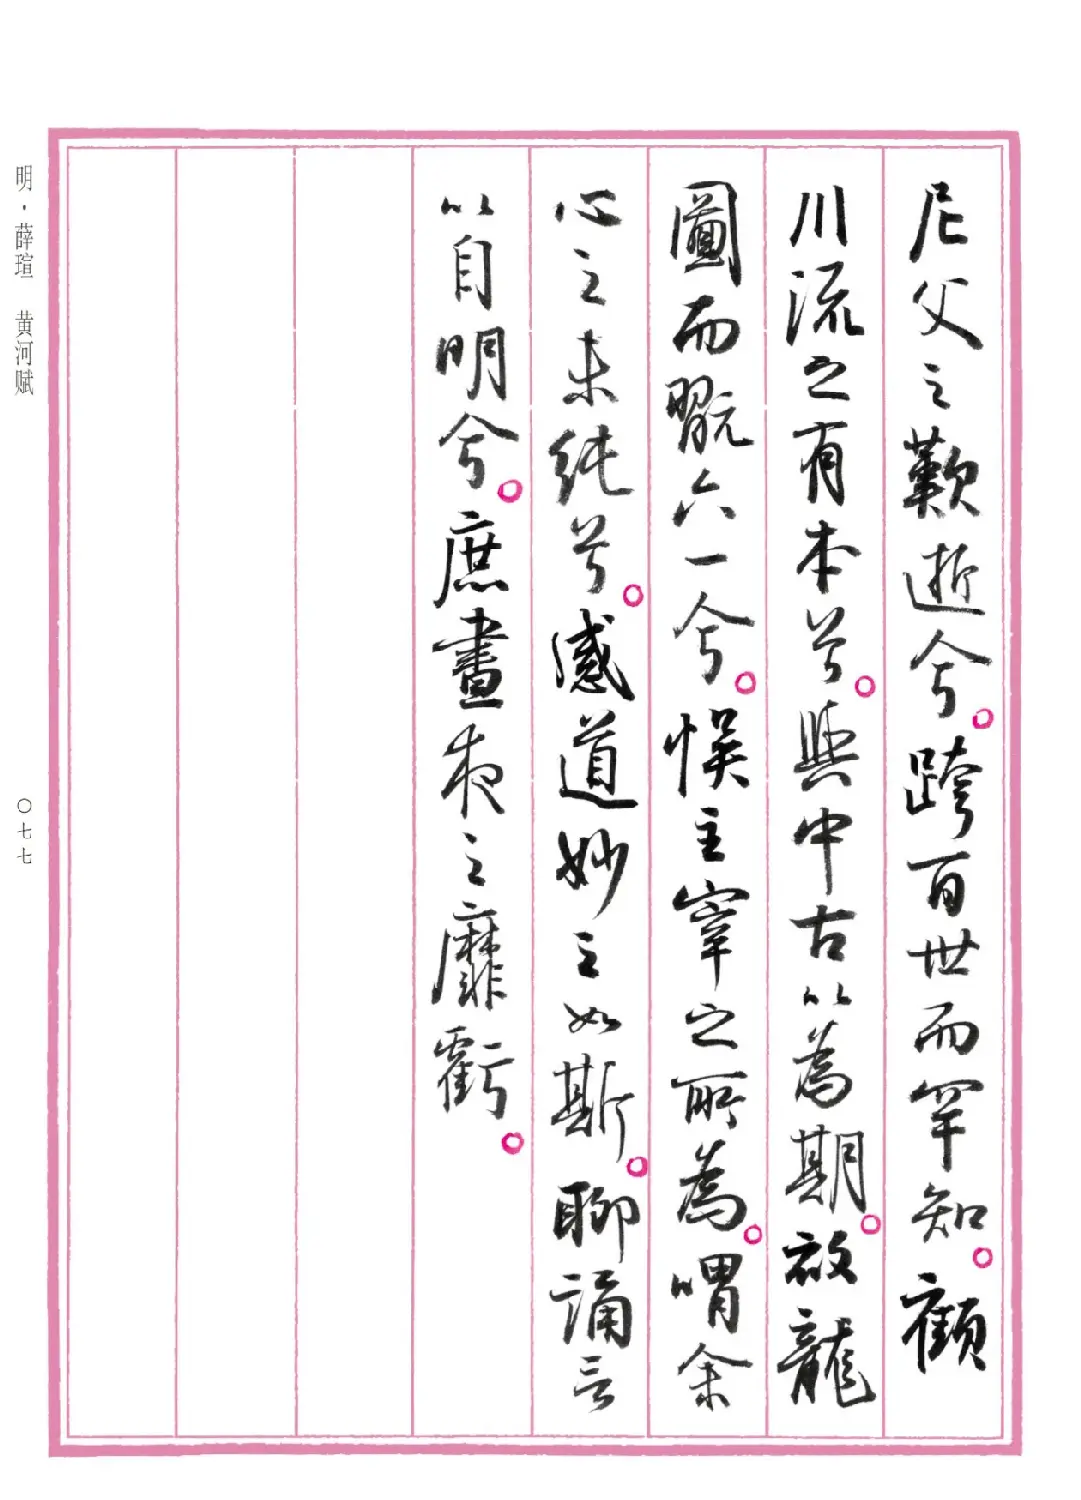 尼父之歎逝兮。跨百世而罕知。顧
川流之有本兮。與中古以為期。啟龍
圖而翫六一兮。悮主宰之所為。喟余
心之未純兮。感道妙之如斯。聊誦言
以自明兮。庶晝夜之靡虧。
明·薛瑄 黄河赋
〇七七